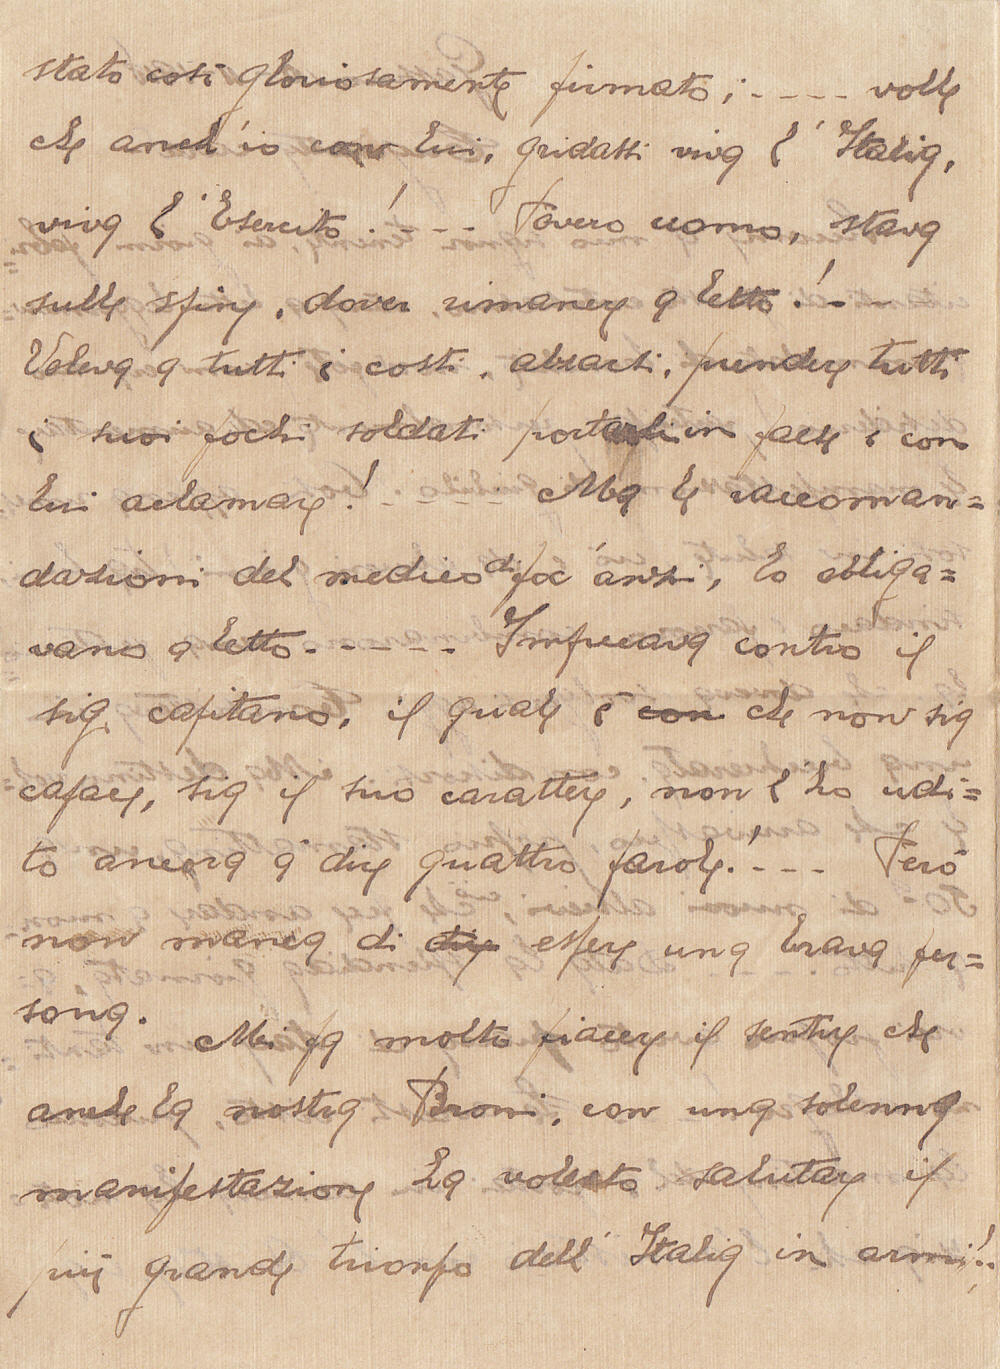 stato così gloriosamente firmato; ---- volle
che anch'io con lui, gridassi viva l'Italia,
viva l'Esercito! --- Povero uomo, stava
sulle spine, dover rimanere a letto! --
Voleva a tutti i costi, alzarsi, prendere tutti
i suoi pochi soldati portarli in paese e con
lui aclamare! --- Ma le raccoman=
dazioni del medico di poc'anzi, lo obliga=
vano a letto ----- Imprecava contro il
sig. capitano, il quale è con che non sia
capace, sia il suo carattere, non l'ho udi=
to ancora a dire quattro parole! --- Però
non manca di dire essere una brava per=
sona.
Mi fa molto piacere il sentire che
anche la nostra Broni, con una solenne
manifestazione ha voluto salutare il
più grande trionfo dell'Italia in armi!..